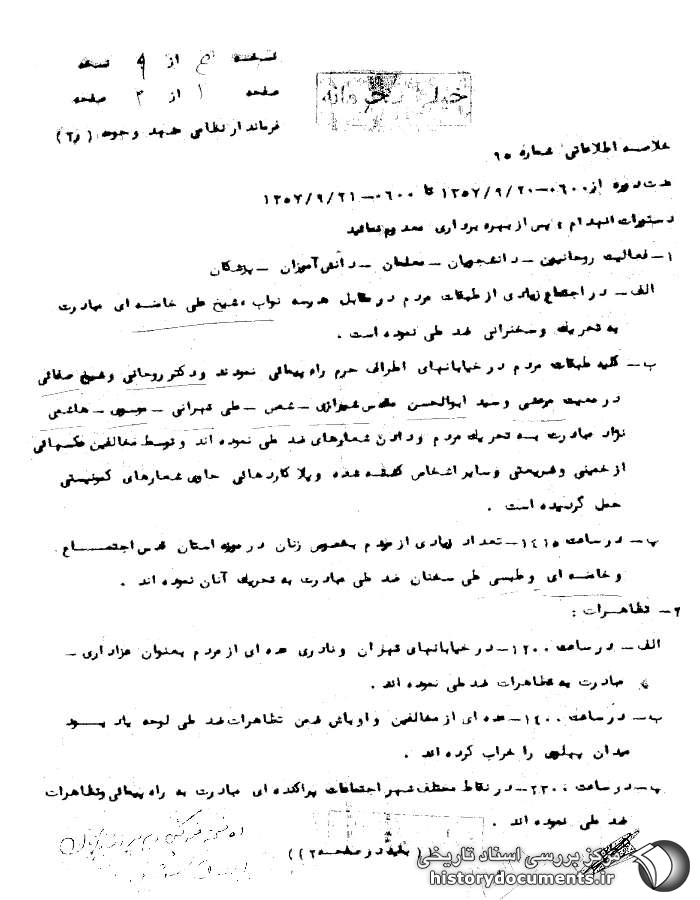 نسخه ح از ۹ نسخه
صفحه ۱ از ۳ صفحه
خیلی محرمانه
فرماندار نظامی مشهد وحومه (ر۲)
خلاصه اطلاعاتی شماره ۹۵
مدت دوره از ۰۶۰۰-۱۳۵۷/۹/۲۰ تا ۰۶۰۰-۱۳۵۷/۹/۲۱
دستورات انهدام : پس از بهره برداری معدوم نمائید
۱- فعالیت روحانیون - دانشجویان - معلمان - دانش آموزان - پزشکان
الف - در اجتماع زیادی از طبقات مردم در مقابل مدرسه نواب ، شیخ علی خامنه ای مبادرت
به تحریک وسخنرانی ضد ملی نموده است .
ب - کلیه طبقات مردم در خیابانهای اطراف حرم راه پیمائی نمودند ودکتر روحانی وشیخ صفائی
در معیت مرعشی وسید ابوالحسن مقدس شیرازی - شمس - علی تهرانی - موسوی - هاشمی
نژاد مبادرت به تحریک مردم ودادن شعارهای ضد ملی نموده اند وتوسط مخالفین عکسهائی
از خمینی وشریعتی وسایر اشخاص کشته شده وپلاکاردهائی حاوی شعارهای کمونیستی
حمل گردیده است .
پ - در ساعت ۱۴۱۵ - تعداد زیادی از مردم بخصوص زنان در موزه استان قدس اجتمــــاع
وخامنه ای وطبسی طی سخنان ضد ملی مبادرت به تحریک آنان نموده اند .
۲- تظاهرات :
الف - در ساعت ۱۲۰۰ - در خیابانهای تهران ونادری عده ای از مردم بعنوان عزاداری -
مبادرت به تظاهرات ضد ملی نموده اند .
ب - در ساعت ۱۴۰۰ - عده ای از مخالفین واوباش ضمن تظاهرات ضد ملی لوحه یاد بــود
میدان پهلوی را خراب کرده اند .
پ - در ساعت ۲۳۰۰ - در نقاط مختلف شهر اجتماعات پراکنده ای مبادرت به راه پیمائی وتظاهرات
ضد ملی نموده اند .
(( بقیه در صفحه ۲ ))
مرکز بررسی اسناد تاریخی
historydocuments.ir